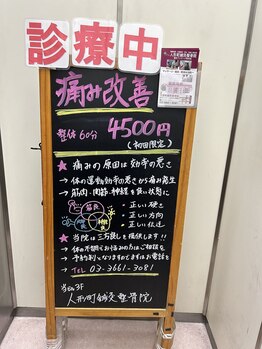 診療中
痛み改善
整体60分 4500円
(初回限定)
★ 痛みの原因は効率の悪さ
→体の運動効率の悪さから痛み発生
→筋肉・関節・神経を良い状態に
・正しい硬さ
・正しい方向
・正しい伝達
筋肉
関節
神経
★ 当院は三方良しを提供します!!
→体の不調でお悩みの方はご相談を
→予約制となりますのでまずはお電話を
→TEL 03-3661-3081
当ビル3F
人形町鍼灸整骨院